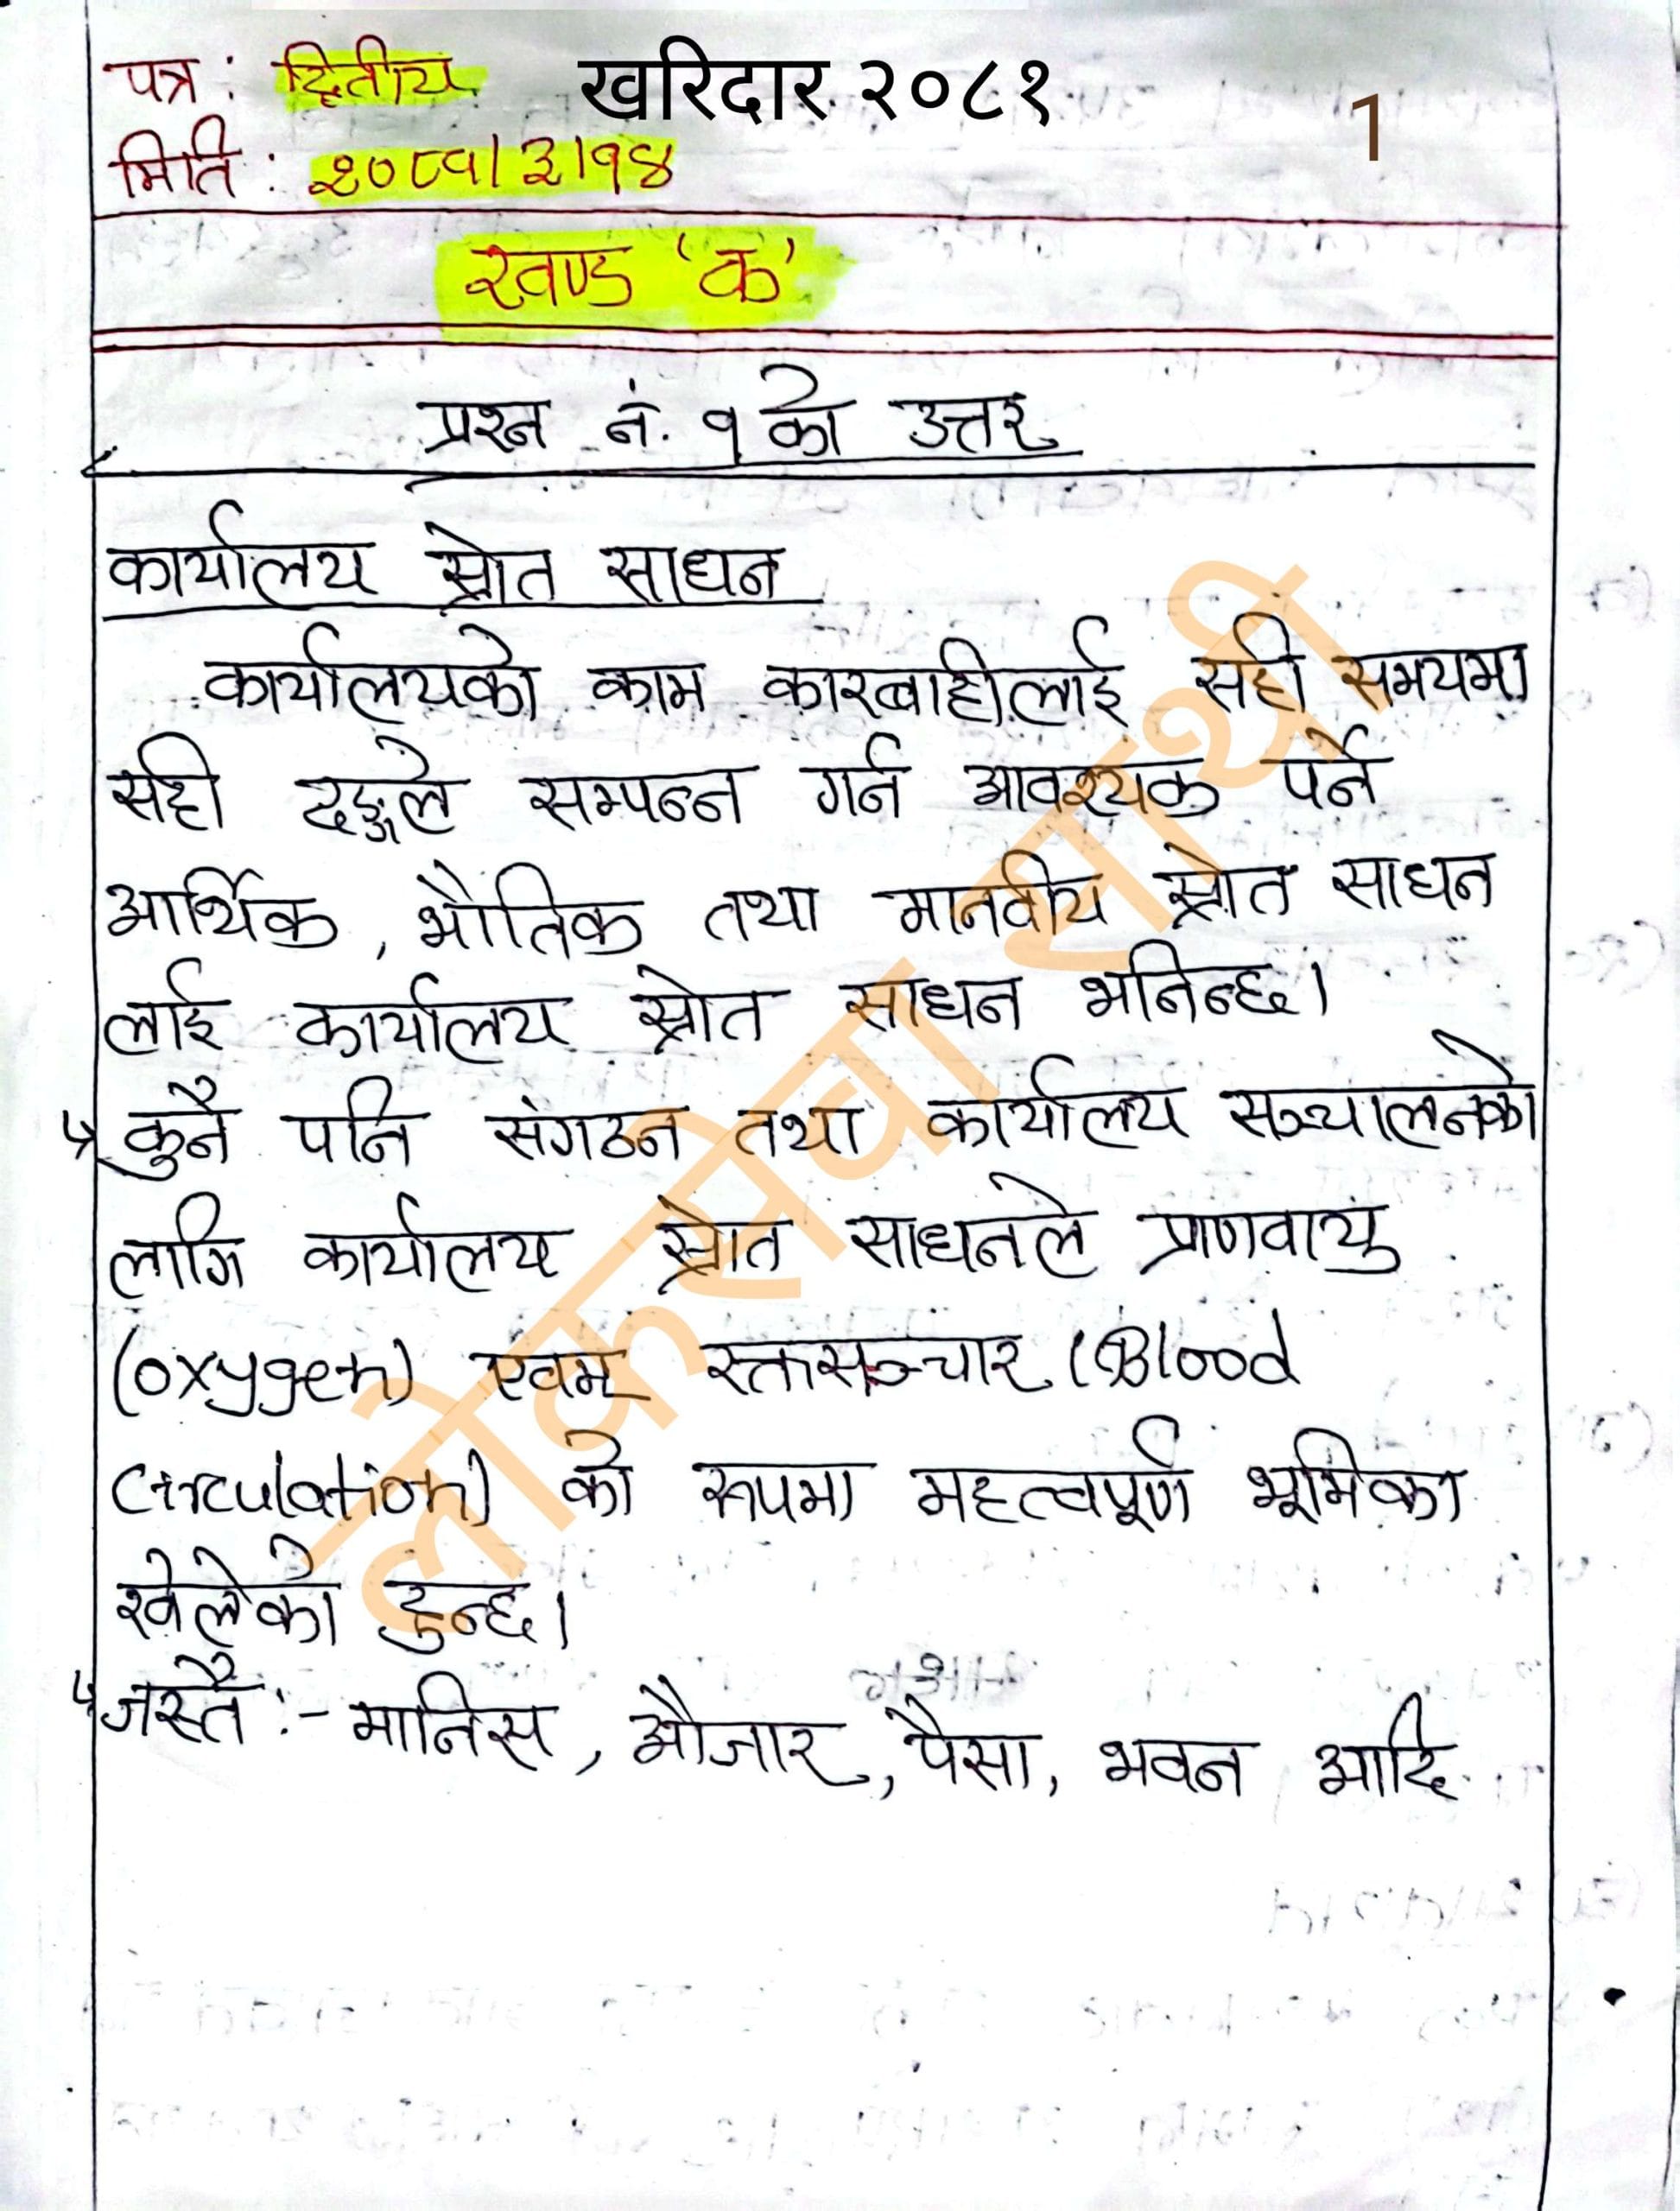 पत्र : द्वितीय
खरिदार २०८१
1
मिति : २०८१।३।१४
खण्ड 'क'
प्रश्न नं. १ को उत्तर
कार्यालय स्रोत साधन
कार्यालयको काम कारबाहीलाई सही समयमा
सही ढङ्गले सम्पन्न गर्न आवश्यक पर्ने
आर्थिक, भौतिक तथा मानवीय स्रोत साधन
लाई कार्यालय स्रोत साधन भनिन्छ।
↳ कुनै पनि संगठन तथा कार्यालय सञ्चालनको
लागि कार्यालय स्रोत साधनले प्राणवायु
(oxygen) एवम् रक्तसञ्चार (Blood
circulation) को रूपमा महत्वपूर्ण भूमिका
खेलेको हुन्छ।
↳ जस्तै :- मानिस, औजार, पैसा, भवन आदि
लोकसेवा साथी